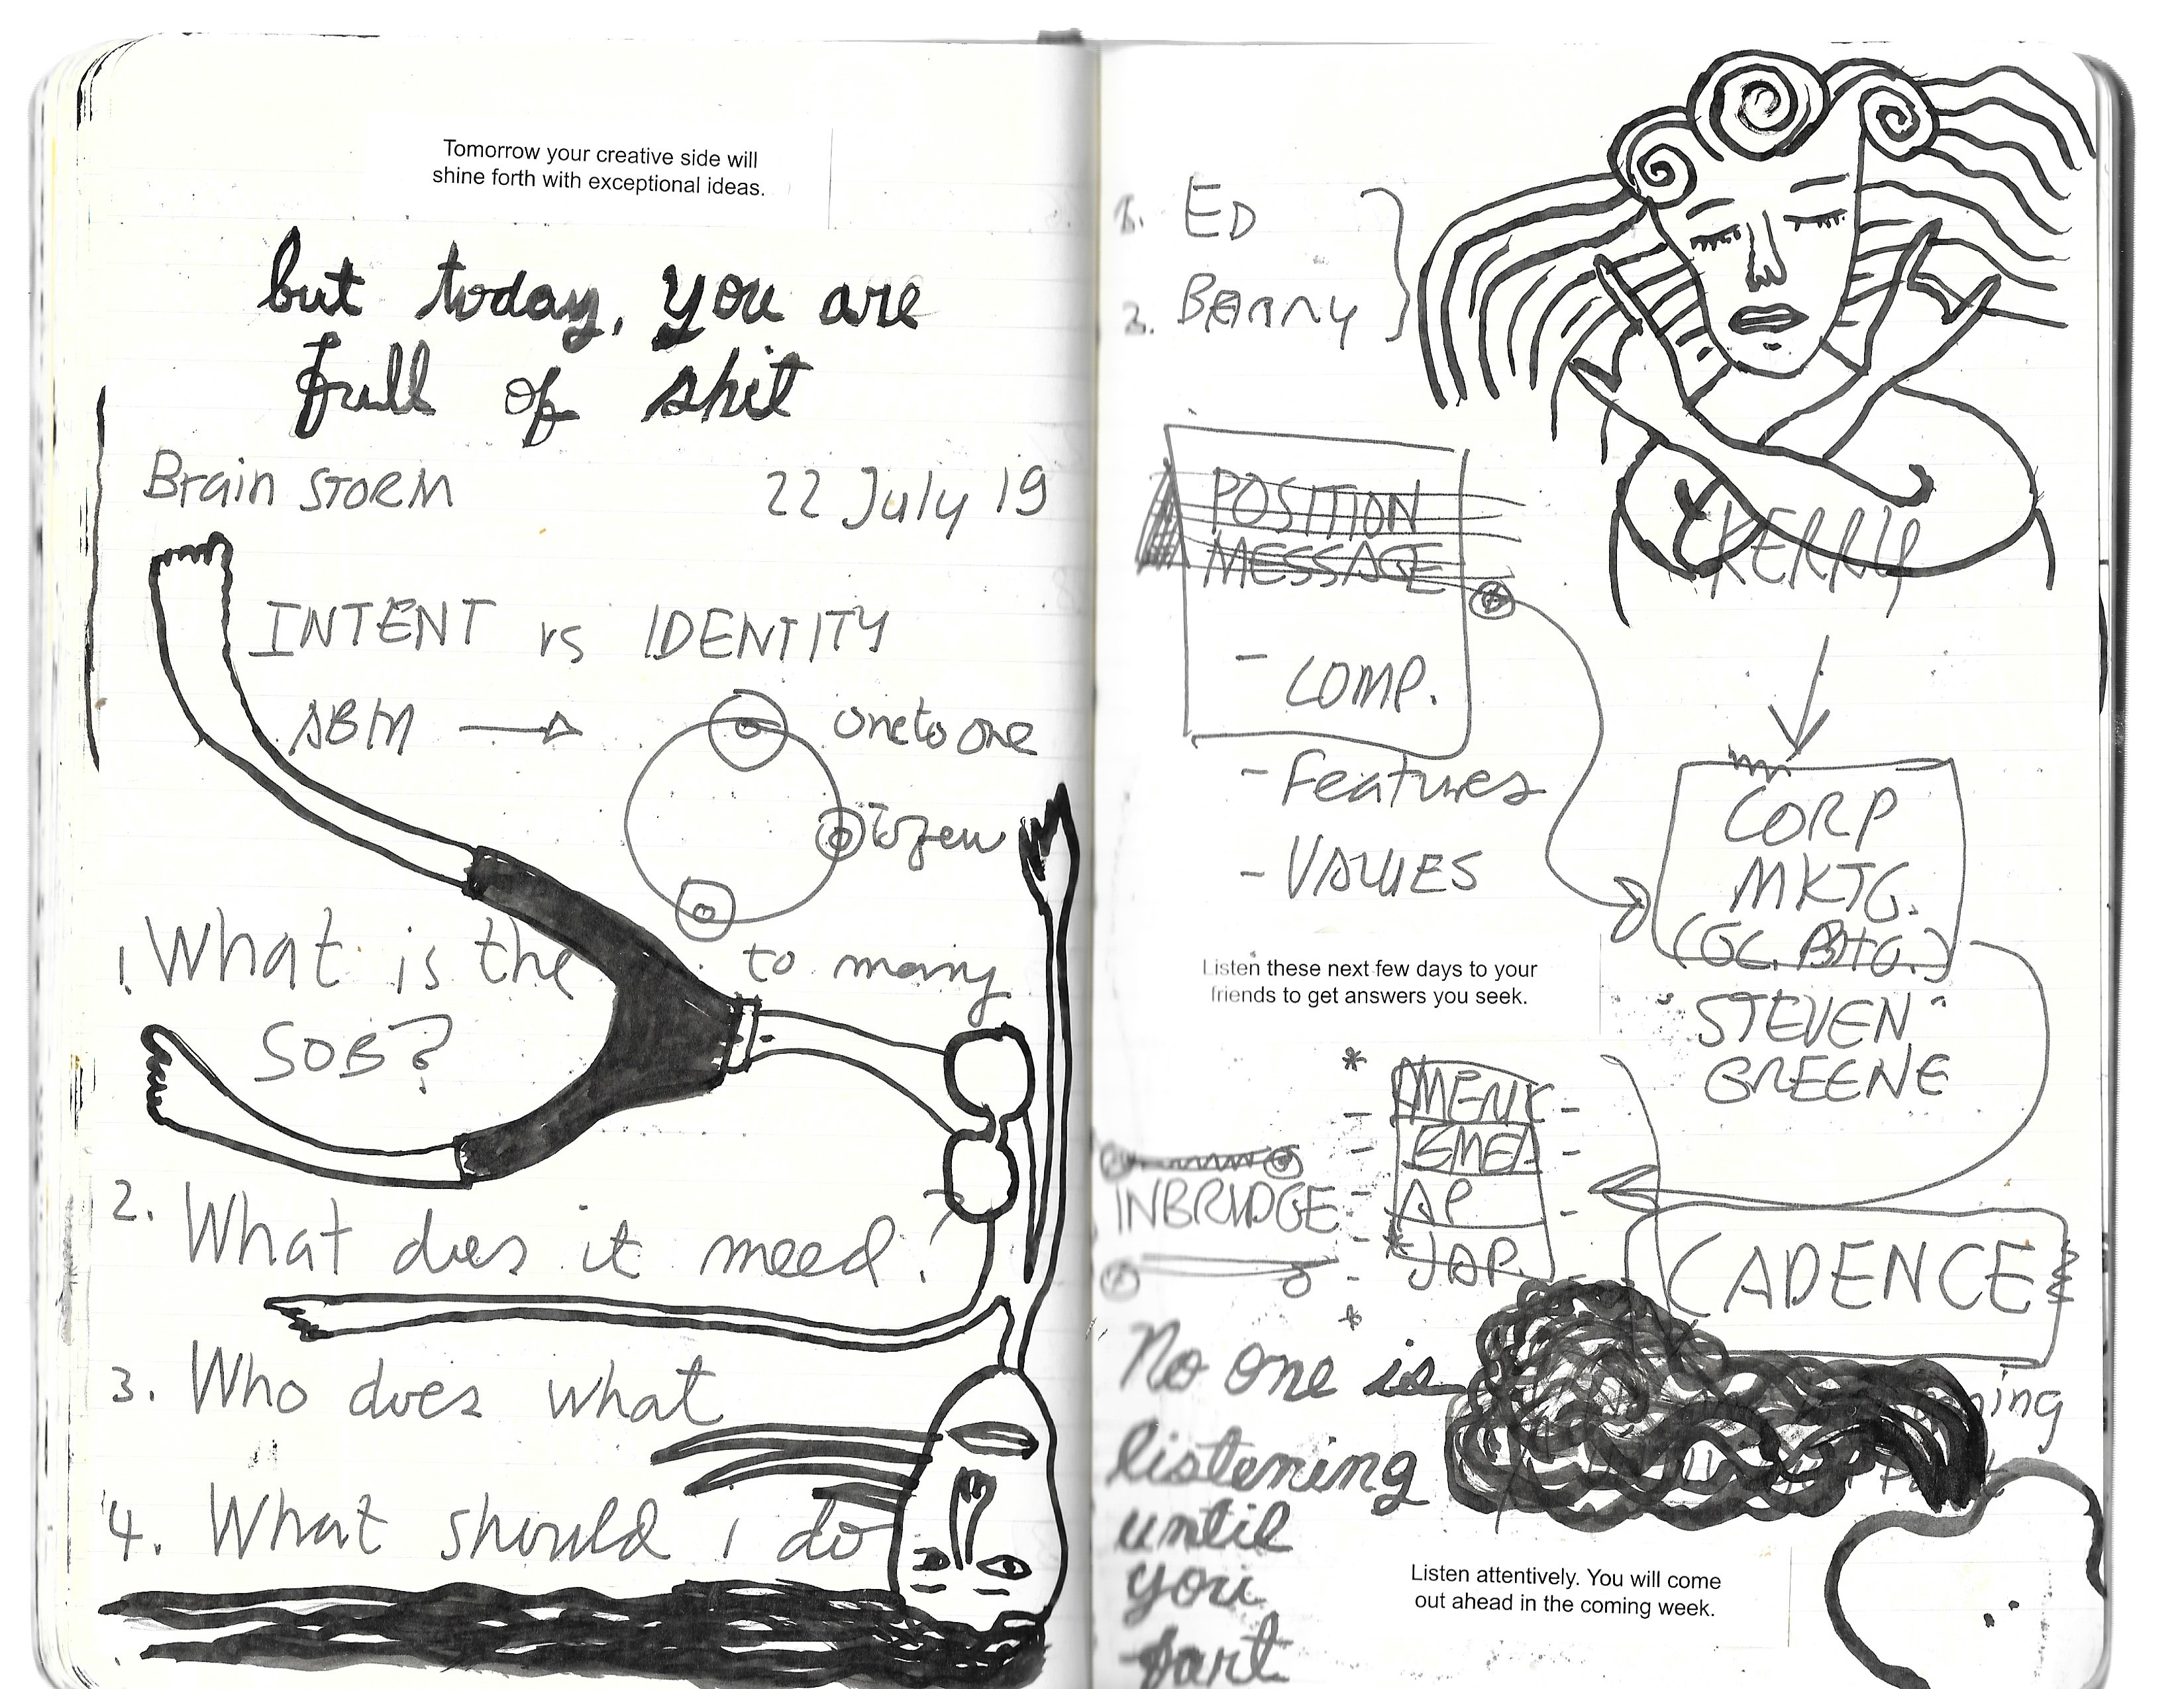 Tomorrow your creative side will
shine forth with exceptional ideas.
but today, you are
full of shit
Brain STORM 22 July 19
INTENT vs IDENTITY
ABM one to one
to few
to many
1. What is the
SOB?
2. What does it need?
3. Who does what
4. What should i do
1. ED
2. BARRY
KERRY
POSITION
MESSAGE
- COMP.
- Features
- VALUES
CORP
MKTG.
"STEVEN"
GREENE
Listen these next few days to your
friends to get answers you seek.
EMEA
AP
JAP.
INBRIDGE
CADENCE
No one is
listening
until
you
fart
Listen attentively. You will come
out ahead in the coming week.